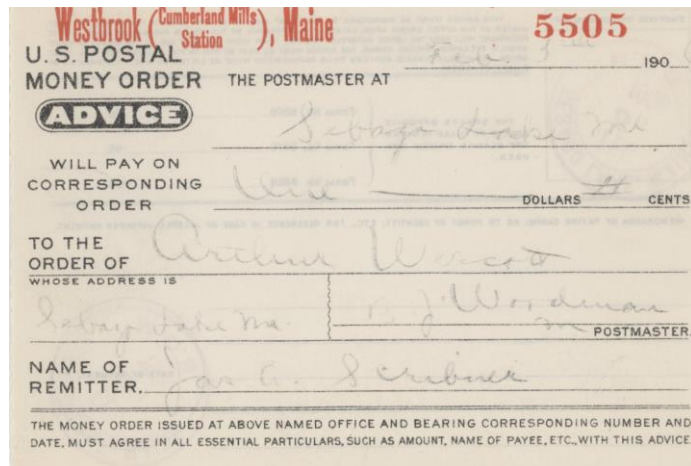 Westbrook (Cumberland Mills Station), Maine 5505
U.S. POSTAL MONEY ORDER
Feb. 190
THE POSTMASTER AT
ADVICE
Sebago Lake Me
WILL PAY ON CORRESPONDING ORDER
One DOLLARS CENTS
TO THE ORDER OF Arthur
WHOSE ADDRESS IS
Sebago Lake Me. J. Woodman
POSTMASTER.
NAME OF REMITTER, Jas A. Scribner
THE MONEY ORDER ISSUED AT ABOVE NAMED OFFICE AND BEARING CORRESPONDING NUMBER AND
DATE, MUST AGREE IN ALL ESSENTIAL PARTICULARS, SUCH AS AMOUNT, NAME OF PAYEE, ETC., WITH THIS ADVICE